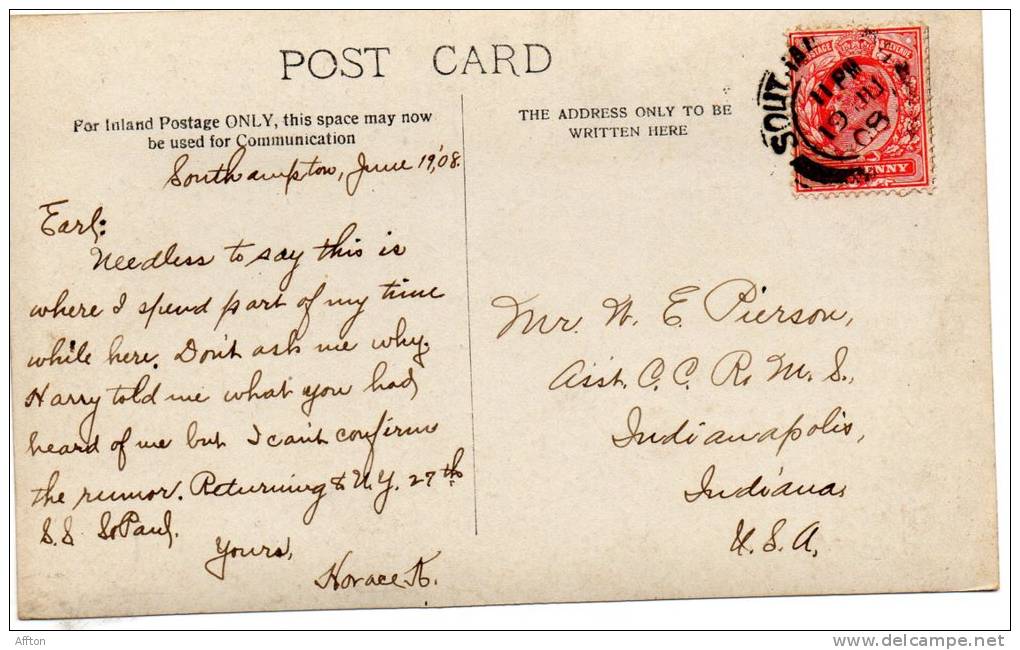 POST CARD
For Inland Postage ONLY, this space may now
be used for Communication
THE ADDRESS ONLY TO BE
WRITTEN HERE
POSTAGE REVENUE
PENNY
11 PM
19 JU
08
Southampton, June 19, '08.
Earl:
Needless to say this is
where I spend part of my time
while here. Don't ask me why.
Harry told me what you had
heard of me but I can't confirm
the rumor. Returning to N.Y. 27th
S.S. St Paul.
Yours,
Horace K.
Mr. W. E. Pierson,
Asst. C. C. R. M. S.,
Indianapolis,
Indiana,
U.S.A.
Affton
www.delcampe.net